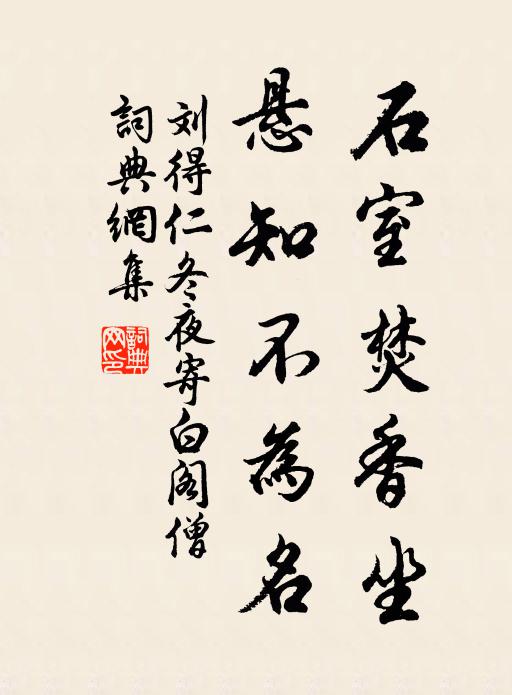 石室焚香坐
悬知不為名
刘得仁冬夜寄白阁僧
詞典網集
詞典網印